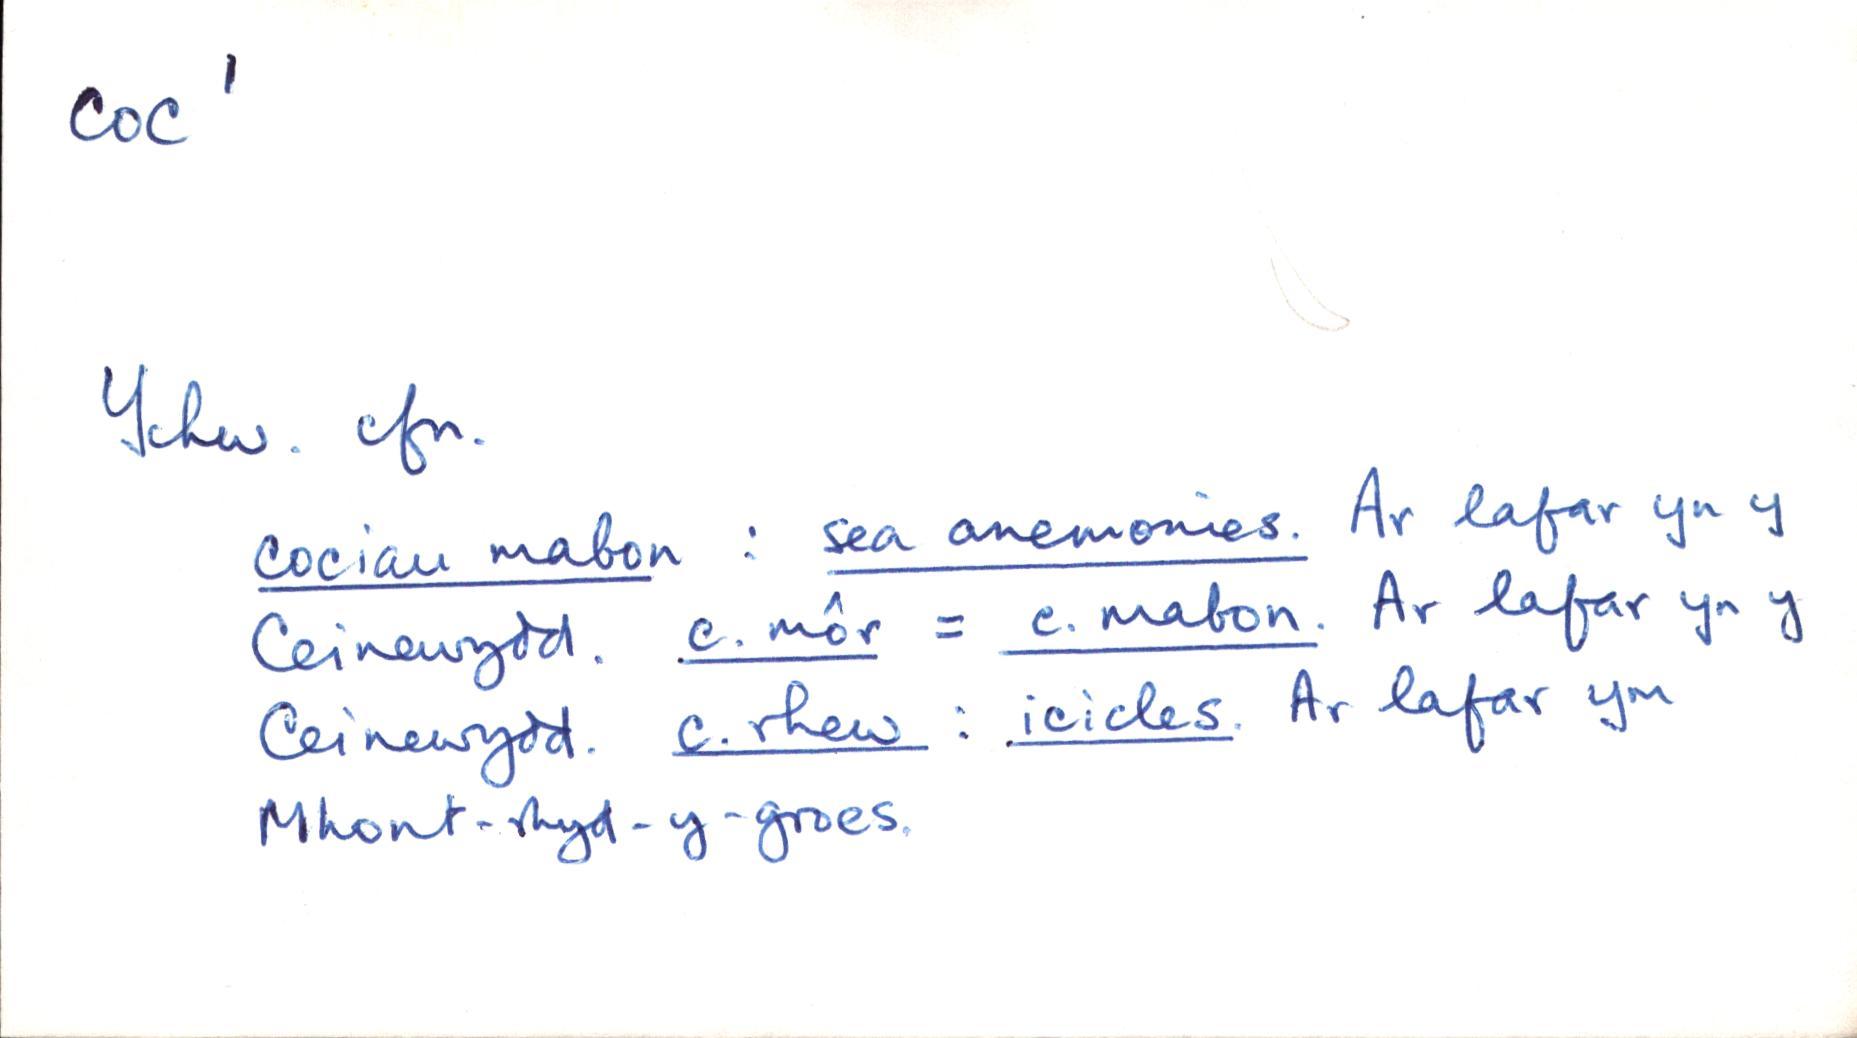 coc¹
Ychw. cfn.
cociau mabon : sea anemonies. Ar lafar yn y
Ceinewydd. c. môr = c. mabon. Ar lafar yn y
Ceinewydd. c. rhew : icicles. Ar lafar ym
Mhont-rhyd-y-groes.